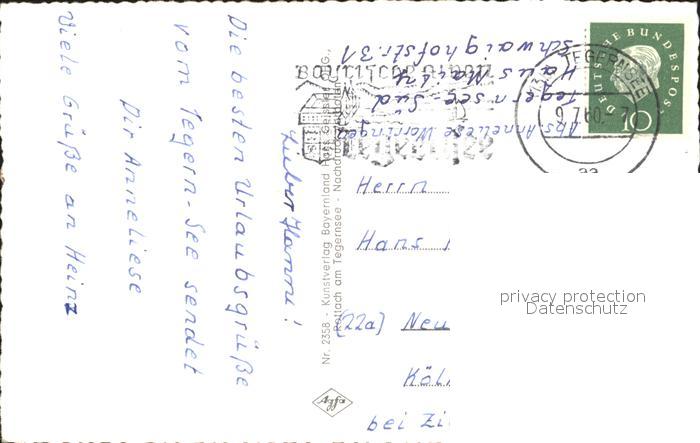 Lieber Hanni!
Die besten Urlaubsgrüße
vom Tegern-See sendet
Dir Anneliese
Viele Grüße an Heinz
Abs. Anneliese
Tegernsee-Süd
Haus Maria
Schwaighofstr. 31
TEGERNSEE
9.7.60.-7
aa
DEUTSCHE BUNDESPOST
10
Tegernsee
Nr. 2358 - Kunstverlag Bayernland Hans
Rottach am Tegernsee - Nachdruck
Agfa
Herrn
Hans
(22a) Neu
Köl
bei Zi
privacy protection
Datenschutz